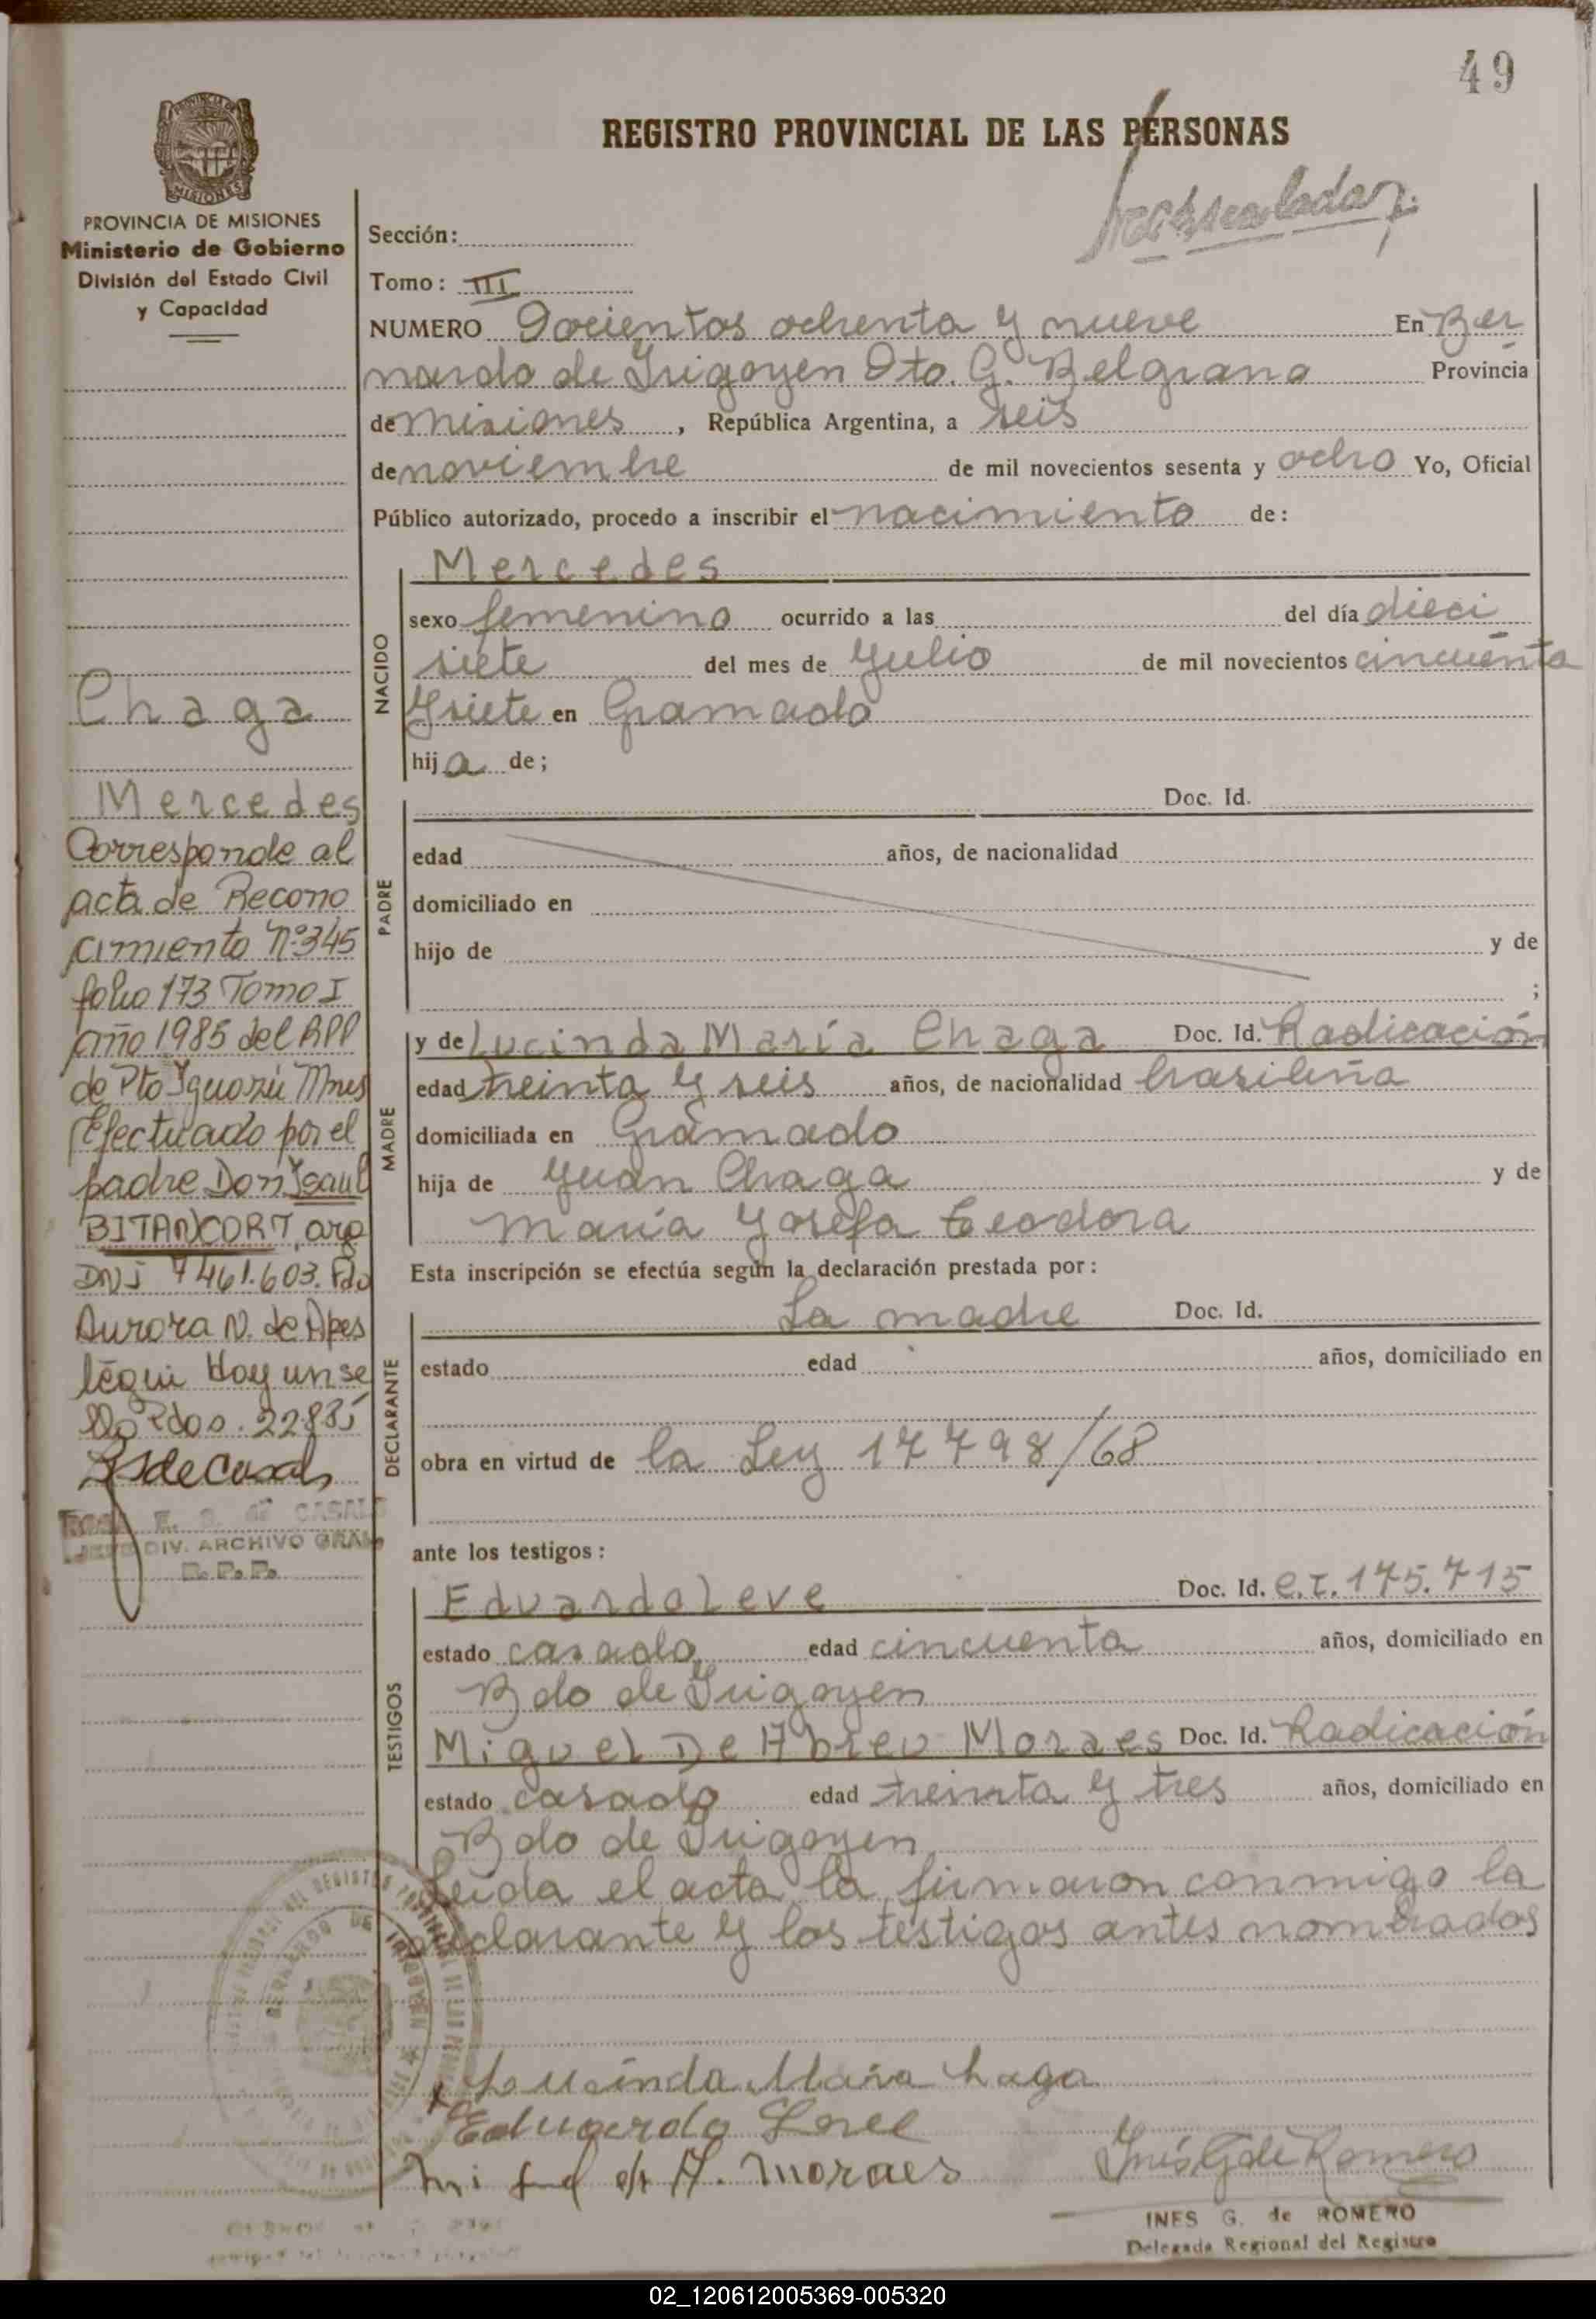 49
REGISTRO PROVINCIAL DE LAS PERSONAS
PROVINCIA DE
MISIONES
PROVINCIA DE MISIONES
Ministerio de Gobierno
División del Estado Civil
y Capacidad
Chaga
Mercedes
Corresponde al
acta de Recono
cimiento Nº 345
folio 173 Tomo I
año 1985 del RPP
de Pto Iguazú Mnes
Efectuado por el
padre Don Ysaul
BITANCORT, arg
DNI 7461.603. Fdo
Aurora N. de Apes
légui Hoy un se
llado Pdos. 22885
CASALS
DIV. ARCHIVO GRAL
R. P. P.
Sección:
Tomo: III
NUMERO Docientos ochenta y nueve En Ber
nardo de Irigoyen Dto. G. Belgrano Provincia
de Misiones, República Argentina, a seis
de noviembre de mil novecientos sesenta y ocho Yo, Oficial
Público autorizado, procedo a inscribir el nacimiento de:
NACIDO
Mercedes
sexo femenino ocurrido a las del día dieci
siete del mes de Yulio de mil novecientos cincuenta
y siete en Gramado
hija de;
PADRE
Doc. Id.
edad años, de nacionalidad
domiciliado en
hijo de y de
;
MADRE
y de Lucinda María Chaga Doc. Id. Radicación
edad treinta y seis años, de nacionalidad brasileña
domiciliada en Gramado
hija de Yuan Chaga y de
María Yosefa Teodora
Esta inscripción se efectúa según la declaración prestada por:
DECLARANTE
La madre Doc. Id.
estado edad años, domiciliado en
obra en virtud de la Ley 17798/68
ante los testigos:
TESTIGOS
Eduardo Leve Doc. Id. C.I. 175.715
estado casado edad cincuenta años, domiciliado en
Bdo de Irigoyen
Miguel De Abreu Moraes Doc. Id. Radicación
estado casado edad treinta y tres años, domiciliado en
Bdo de Irigoyen
Leída el acta la firmaron conmigo la
declarante y los testigos antes nombrados
Lucinda Maria haga
Eduardo Leve
A. Moraes
Inés G de Romero
INES G. de ROMERO
Delegada Regional del Registro
02_120612005369-005320